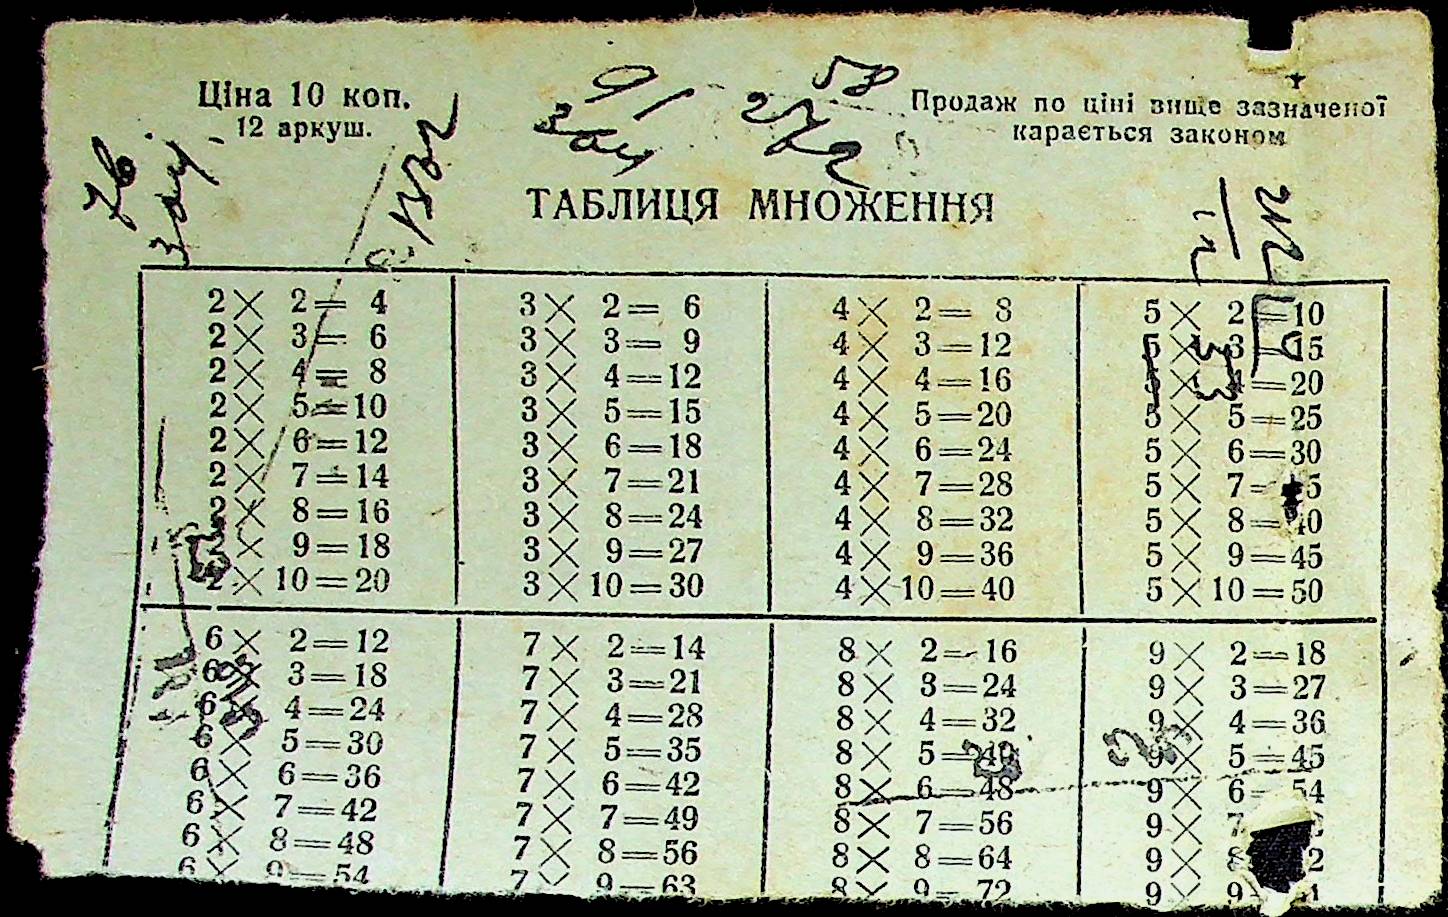 Ціна 10 коп.
12 аркуш.
Продаж по ціні вище зазначеної
карається законом
ТАБЛИЦЯ МНОЖЕННЯ
2 × 2 = 4
2 × 3 = 6
2 × 4 = 8
2 × 5 = 10
2 × 6 = 12
2 × 7 = 14
2 × 8 = 16
2 × 9 = 18
2 × 10 = 20
3 × 2 = 6
3 × 3 = 9
3 × 4 = 12
3 × 5 = 15
3 × 6 = 18
3 × 7 = 21
3 × 8 = 24
3 × 9 = 27
3 × 10 = 30
4 × 2 = 8
4 × 3 = 12
4 × 4 = 16
4 × 5 = 20
4 × 6 = 24
4 × 7 = 28
4 × 8 = 32
4 × 9 = 36
4 × 10 = 40
5 × 2 = 10
5 × 3 = 15
5 × = 20
5 × 5 = 25
5 × 6 = 30
5 × 7 = 5
5 × 8 = 40
5 × 9 = 45
5 × 10 = 50
6 × 2 = 12
6 × 3 = 18
6 × 4 = 24
6 × 5 = 30
6 × 6 = 36
6 × 7 = 42
6 × 8 = 48
6 × 9 = 54
7 × 2 = 14
7 × 3 = 21
7 × 4 = 28
7 × 5 = 35
7 × 6 = 42
7 × 7 = 49
7 × 8 = 56
7 × 9 = 63
8 × 2 = 16
8 × 3 = 24
8 × 4 = 32
8 × 5 = 40
8 × 6 = 48
8 × 7 = 56
8 × 8 = 64
8 × 9 = 72
9 × 2 = 18
9 × 3 = 27
9 × 4 = 36
9 × 5 = 45
9 × 6 = 54
9 × 7
9 × 8 2
9 × 9 1